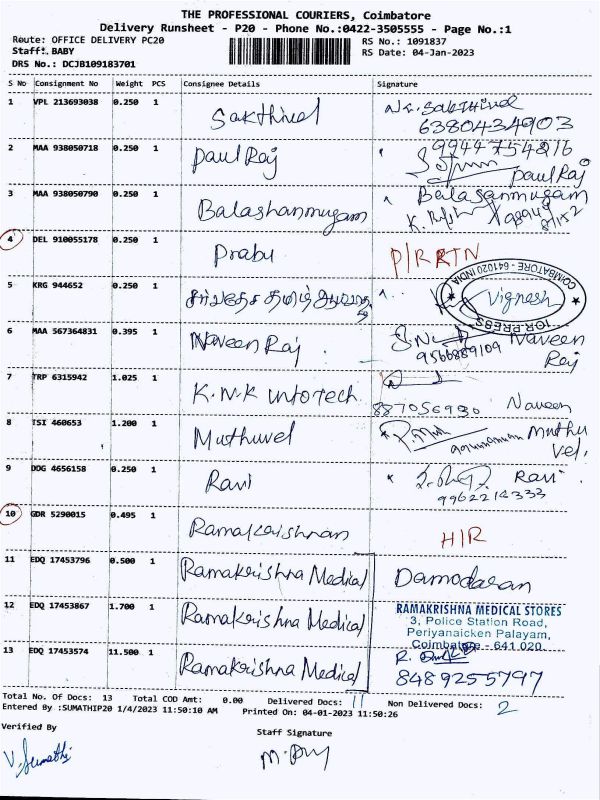 THE PROFESSIONAL COURIERS, Coimbatore
Delivery Runsheet - P20 - Phone No.:0422-3505555 - Page No.:1
Route: OFFICE DELIVERY PC20
RS No.: 1091837
Staff: BABY
RS Date: 04-Jan-2023
DRS No.: DCJB109183701
S No Consignment No Weight PCS Consignee Details Signature
1 VPL 213693038 0.250 1 Sakthivel
Sakthivel
6380434903
2 MAA 938050718 0.250 1 Paul Raj
9944754816
Paul Raj
3 MAA 938050790 0.250 1 Balashanmugam
Balasanmugam
4 DEL 910055178 0.250 1 Prabu P/R RTN
5 KRG 944652 0.250 1
Vignesh
COIMBATORE - 641020 INDIA
6 MAA 567364831 0.395 1 Naveen Raj
Naveen Raj
9566889109
7 TRP 6315942 1.025 1 K.N.K infotech
887056930 Naveen
8 TSI 460653 1.200 1 Muthuvel
Muthu
vel.
9 DDG 4656158 0.250 1 Ravi
Ravi
9962214333
10 GDR 5290015 0.495 1 Ramakrishnan H/R
11 EDQ 17453796 0.500 1 Ramakrishna Medical Damodaran
12 EDQ 17453867 1.700 1 Ramakrishna Medical
RAMAKRISHNA MEDICAL STORES
3, Police Station Road,
Periyanaicken Palayam,
Coimbatore - 641 020
13 EDQ 17453574 11.500 1 Ramakrishna Medical
8489255797
Total No. Of Docs: 13 Total COD Amt: 0.00 Delivered Docs: 11 Non Delivered Docs: 2
Entered By :SUMATHIP20 1/4/2023 11:50:10 AM Printed On: 04-01-2023 11:50:26
Verified By
Staff Signature
V. Sumathi